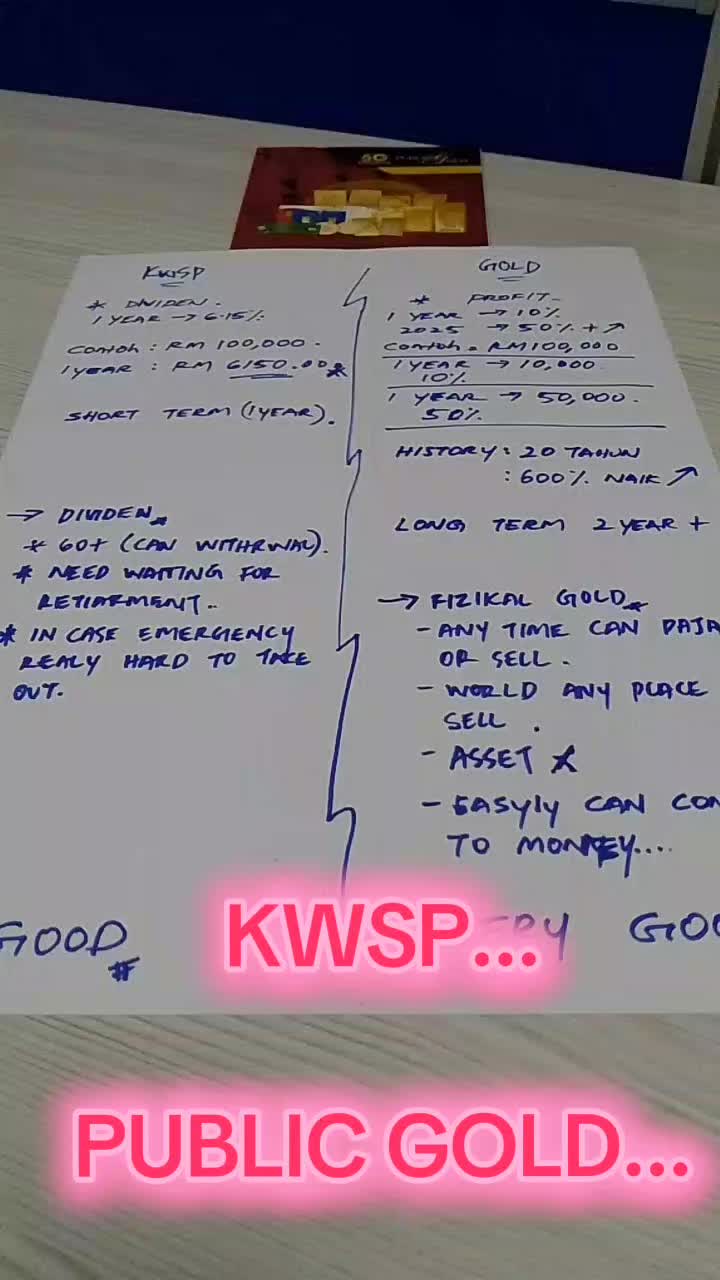 KWSP
* DIVIDEN.
1 YEAR → 6.15%
CONTOH : RM 100,000.
1 YEAR : RM 6150.00
SHORT TERM (1 YEAR).
→ DIVIDEN
* 60+ (CAN WITHRWAL).
* NEED WAITING FOR
RETIARMENT..
* IN CASE EMERGENCY
REALY HARD TO TAKE
OUT.
GOOD
GOLD
* PROFIT
1 YEAR → 10%
2025 → 50% + ↗
CONTOH = RM 100,000
1 YEAR → 10,000.
10%
1 YEAR → 50,000.
50%
HISTORY : 20 TAHUN
: 600% NAIK ↗
LONG TERM 2 YEAR +
→ FIZIKAL GOLD
- ANY TIME CAN PAJA
OR SELL.
- WORLD ANY PLACE
SELL.
- ASSET
- EASYLY CAN CON
TO MONKEY....
ERY GOO
KWSP...
PUBLIC GOLD...